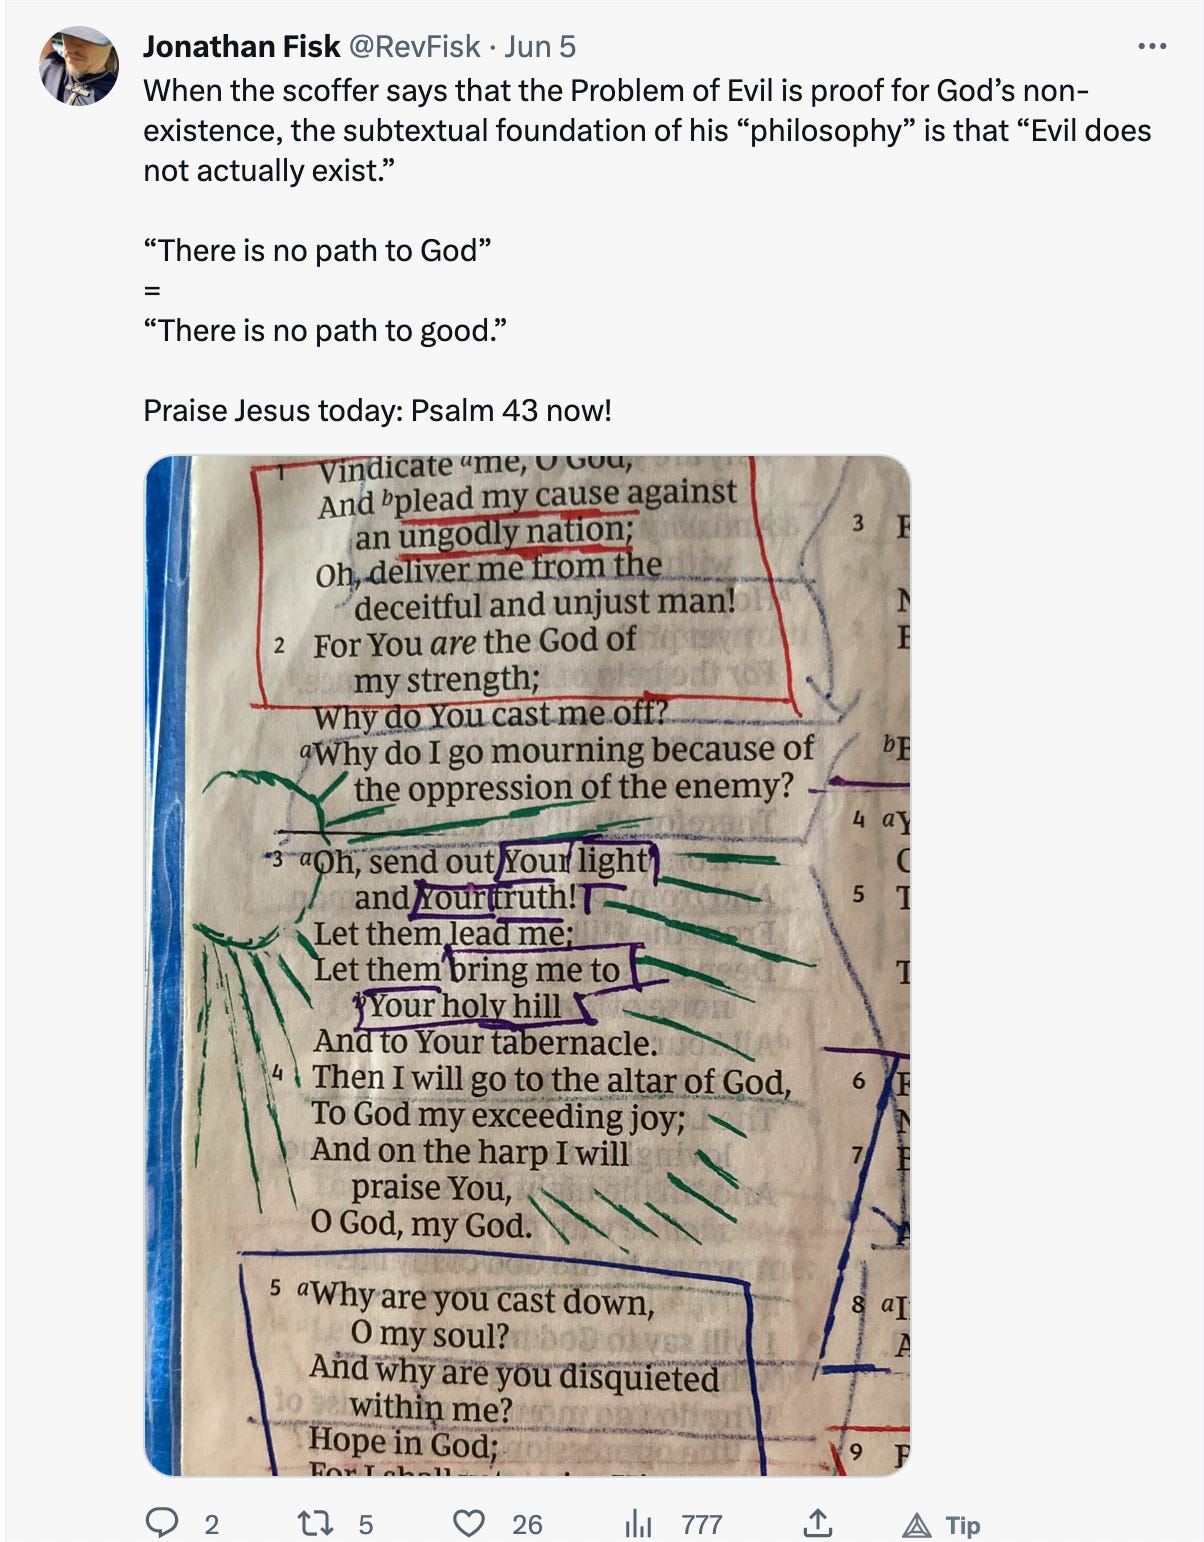 Jonathan Fisk @RevFisk · Jun 5
When the scoffer says that the Problem of Evil is proof for God’s non-
existence, the subtextual foundation of his “philosophy” is that “Evil does
not actually exist.”
“There is no path to God”
=
“There is no path to good.”
Praise Jesus today: Psalm 43 now!
1 Vindicate a me, O God,
And b plead my cause against
an ungodly nation;
Oh, deliver me from the
deceitful and unjust man!
2 For You are the God of
my strength;
Why do You cast me off?
a Why do I go mourning because of
the oppression of the enemy?
3 a Oh, send out Your light
and Your truth!
Let them lead me;
Let them bring me to
b Your holy hill
And to Your tabernacle.
4 Then I will go to the altar of God,
To God my exceeding joy;
And on the harp I will
praise You,
O God, my God.
5 a Why are you cast down,
O my soul?
And why are you disquieted
within me?
Hope in God;
For I shall
3
b
4 a
5
6
7
8 a
9
2 5 26 777 Tip